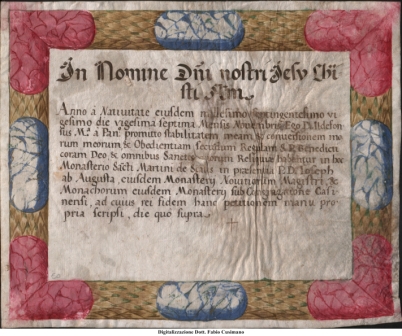 In Nomine Dñi nostri Jesv Chri
sti Am.
Anno à Natiuitate eiusdem millesimo septingentesimo vi
gesimo die vigesima septima Mensis Nouembris Ego D. Ildefon
sus Mᵃ. a Pan. promitto stabilitatem meam, & conuersionem mo
rum meorum & Obedientiam secundum Regulam S. P. Benedicti
coram Deo, & omnibus Sanctis quorum Reliquiæ habentur in hoc
Monasterio Sācti Martini de Scalis in præsentia P. D. Ioseph
ab Augusta, eiusdem Monasterÿ Nouitiorum Magistri, &
Monachorum eiusdem Monasterÿ sub Congregatione Casi
nensi, ad cuius rei fidem hanc petitionem manu pro
pria scripsi, die quo supra.
Digitalizzazione Dott. Fabio Cusimano